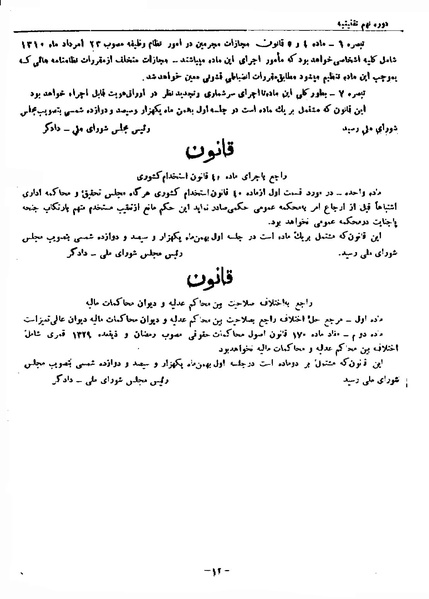 دوره نهم تقنینیه
تبصره ٦ - ماده ٤ و ٥ قانون مجازات مجرمین در امور نظام وظیفه مصوب ٢٣ امرداد ماه ١٣١٠
شامل کلیه اشخاصی خواهد بود که مأمور اجرای این ماده میباشند - مجازات متخلف از مقررات نظامنامه هائی که
بموجب این ماده تنظیم میشود مطابق مقررات انضباطی قشونی معین خواهد شد.
تبصره ٧ - بطور کلی این ماده تا اجرای سرشماری و تجدید نظر در اوراق هویت قابل اجراء خواهد بود
این قانون که مشتمل بر یك ماده است در جلسه اول بهمن ماه یکهزار و سیصد و دوازده شمسی بتصویب مجلس
شورای ملی رسید رئیس مجلس شورای ملی - دادگر
قانون
راجع باجرای ماده ٤٠ قانون استخدام کشوری
ماده واحده - در مورد قسمت اول از ماده ٤٠ قانون استخدام کشوری هر گاه مجلس تحقیق و محاکمه اداری
اشتباهاً قبل از ارجاع امر به محکمه عمومی حکمی صادر نماید این حکم مانع از تعقیب مستخدم متهم بارتکاب جنحه
یا جنایت در محکمه عمومی نخواهد بود.
این قانون که مشتمل بر یك ماده است در جلسه اول بهمن ماه یکهزار و سیصد و دوازده شمسی بتصویب مجلس
شورای ملی رسید. رئیس مجلس شورای ملی - دادگر
قانون
راجع به اختلاف صلاحیت بین محاکم عدلیه و دیوان محاکمات مالیه
ماده اول - مرجع حل اختلاف راجع بصلاحیت بین محاکم عدلیه و دیوان محاکمات مالیه دیوان عالی تمیز است
ماده دوم - مفاد ماده ١٧٠ قانون اصول محاکمات حقوقی مصوب رمضان و ذیقعده ١٣٢٩ قمری شامل
اختلاف بین محاکم عدلیه و محاکمات مالیه نخواهد بود
این قانون که مشتمل بر دو ماده است در جلسه اول بهمن ماه یکهزار و سیصد و دوازده شمسی بتصویب مجلس
شورای ملی رسید رئیس مجلس شورای ملی - دادگر
-١٢-